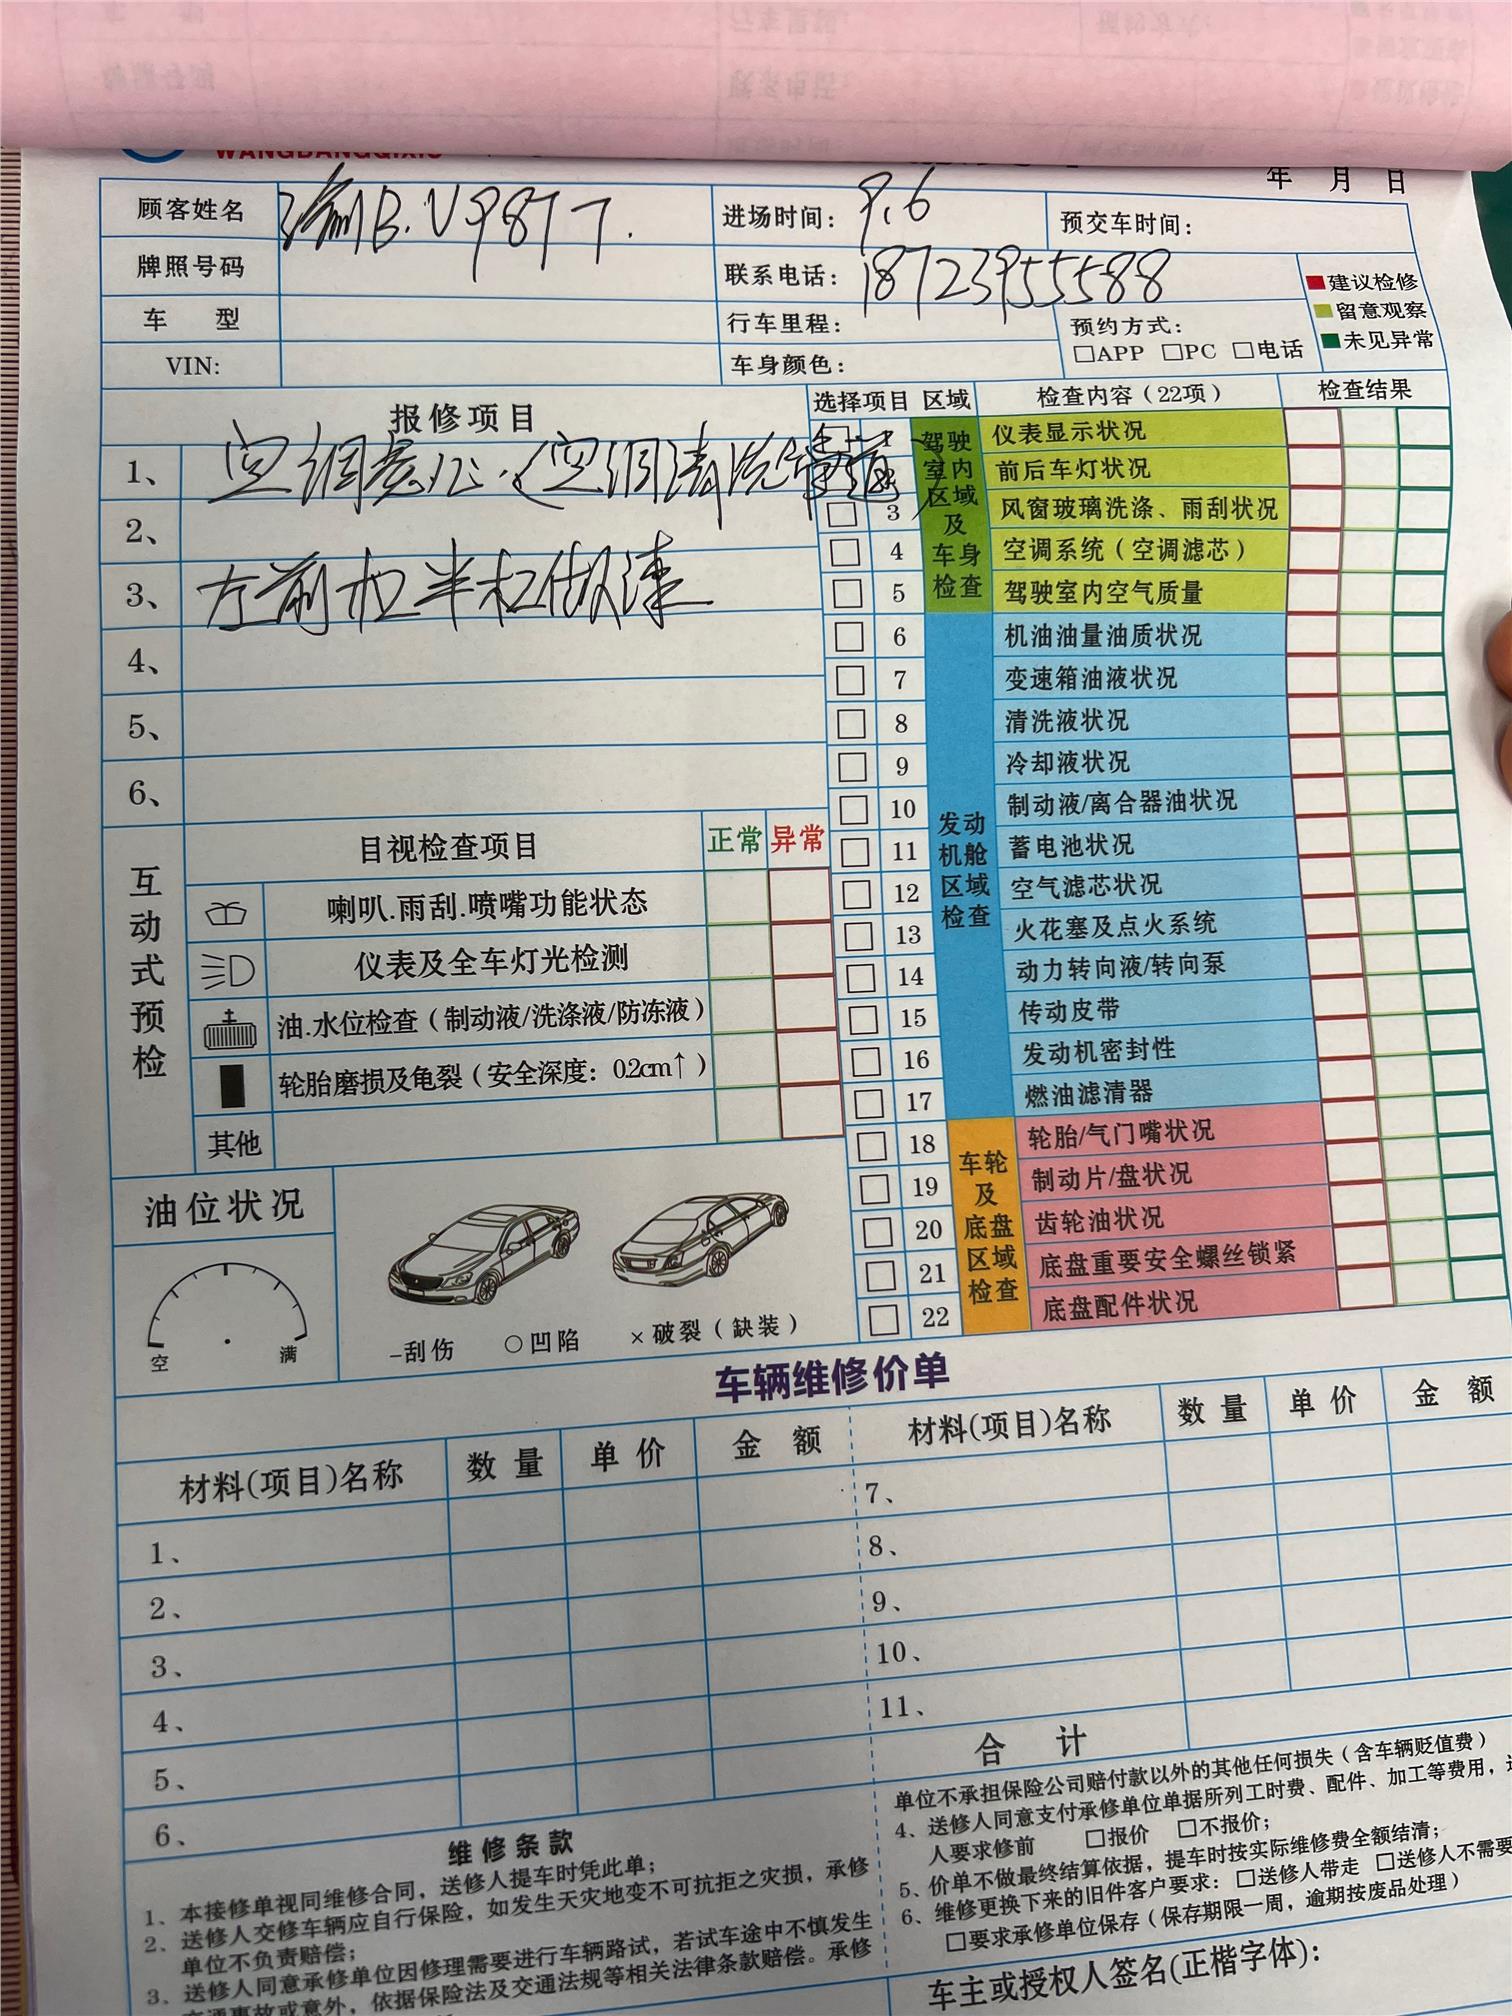 WANGBANGQIXIU
年 月 日
顾客姓名 渝B.V9877. 进场时间: 9.6 预交车时间:
牌照号码 联系电话: 18723955588
车 型 行车里程: 预约方式:
□APP □PC □电话
VIN: 车身颜色:
■建议检修
■留意观察
■未见异常
报修项目
1、 空调 (空调清洗管道)
2、
3、 左前杠半杠做漆
4、
5、
6、
选择项目 区域 检查内容(22项) 检查结果
驾驶室内区域及车身检查
仪表显示状况
前后车灯状况
3 风窗玻璃洗涤、雨刮状况
4 空调系统(空调滤芯)
5 驾驶室内空气质量
发动机舱区域检查
6 机油油量油质状况
7 变速箱油液状况
8 清洗液状况
9 冷却液状况
10 制动液/离合器油状况
11 蓄电池状况
12 空气滤芯状况
13 火花塞及点火系统
14 动力转向液/转向泵
15 传动皮带
16 发动机密封性
17 燃油滤清器
车轮及底盘区域检查
18 轮胎/气门嘴状况
19 制动片/盘状况
20 齿轮油状况
21 底盘重要安全螺丝锁紧
22 底盘配件状况
互动式预检
目视检查项目 正常 异常
喇叭.雨刮.喷嘴功能状态
仪表及全车灯光检测
油.水位检查(制动液/洗涤液/防冻液)
轮胎磨损及龟裂(安全深度: 0.2cm↑)
其他
油位状况
空 满
-刮伤 ○凹陷 ×破裂(缺装)
车辆维修价单
材料(项目)名称 数量 单价 金额 材料(项目)名称 数量 单价 金额
1、 7、
2、 8、
3、 9、
4、 10、
5、 11、
6、 合计
维修条款
1、本接修单视同维修合同，送修人提车时凭此单;
2、送修人交修车辆应自行保险，如发生天灾地变不可抗拒之灾损，承修
单位不负责赔偿;
3、送修人同意承修单位因修理需要进行车辆路试，若试车途中不慎发生
交通事故或意外，依据保险法及交通法规等相关法律条款赔偿。承修
单位不承担保险公司赔付款以外的其他任何损失(含车辆贬值费)
4、送修人同意支付承修单位单据所列工时费、配件、加工等费用，
人要求修前 □报价 □不报价;
5、价单不做最终结算依据，提车时按实际维修费全额结清;
6、维修更换下来的旧件客户要求: □送修人带走 □送修人不需要
□要求承修单位保存(保存期限一周，逾期按废品处理)
车主或授权人签名(正楷字体):